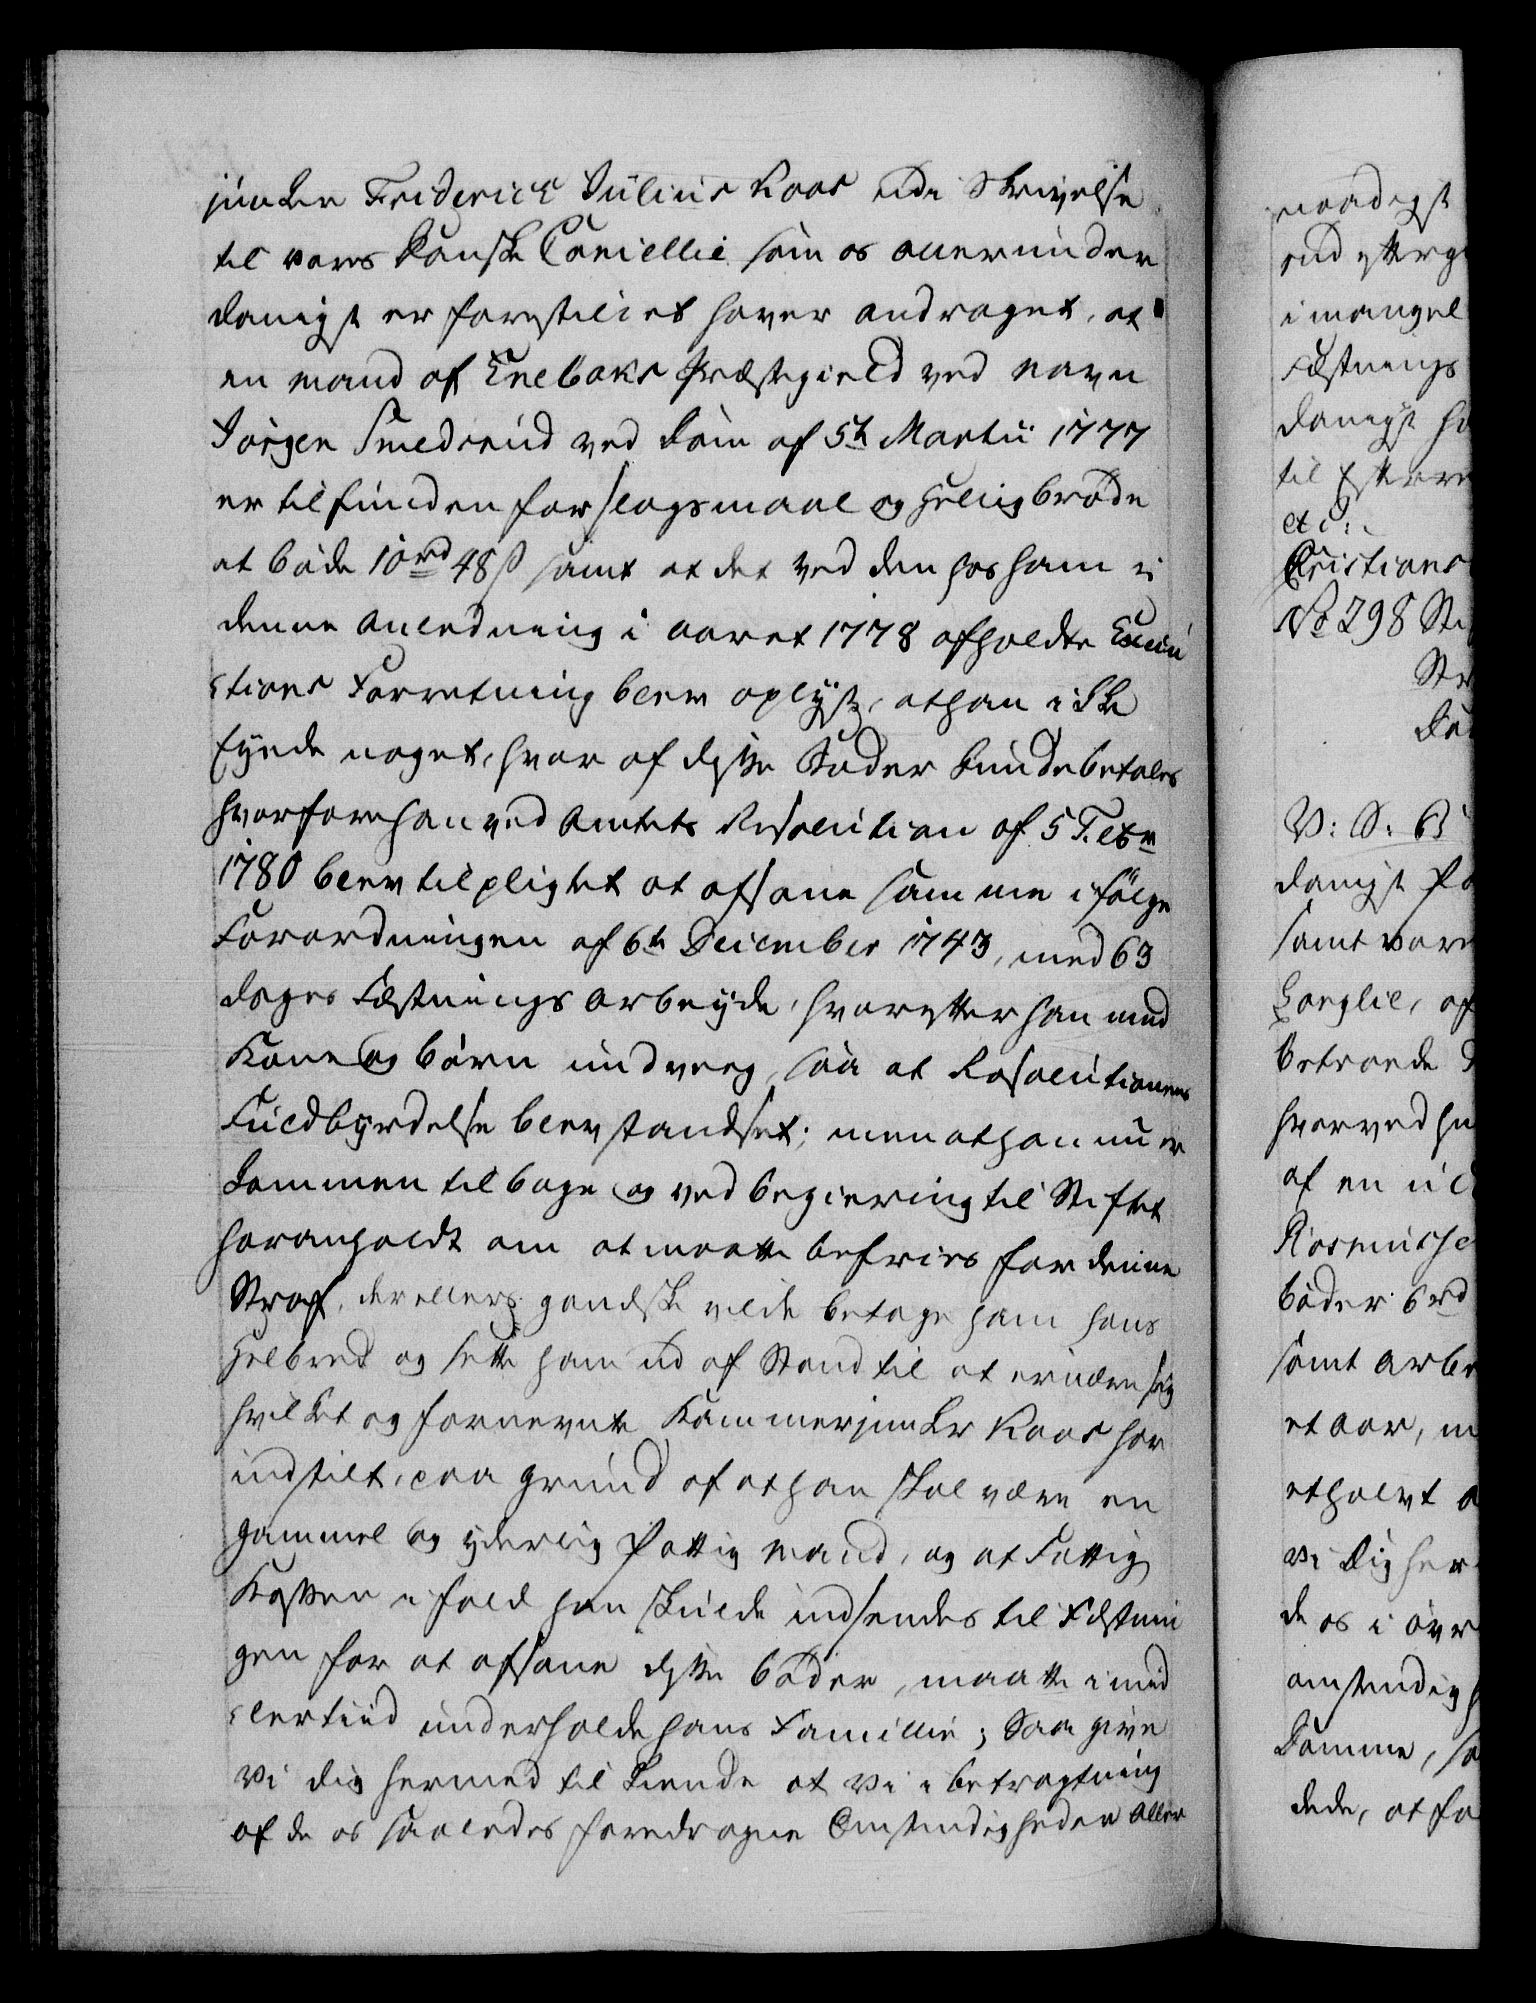 junker Friderich Julius Kaas udi Skrivelse
til vores danske Cancellie som os allerunder
danigst er forestillet haver andraget, at
en mand af Enebaks Præstegield ved navn
Jörgen Smedsrud ved dom af 5te Martii 1777
er tilfunden for slagsmaal og Helligbrøde
at bøde 10 rd 48 ß samt at det ved den hos ham i
denne anledning i aaret 1778 afholdte Execu
tions Forretning blev oplyst, at han ikke
Eyede noget, hvor af disse Bøder kunde betales
hvorfore han ved Amtets Resolution af 5
1780 blev tilpligtet at afsone samme i følge
Forordningen af 6te December 1743, med 63
dages Fæstnings arbeyde, hvorefter han med
Kone og børn undveeg, saa at Resolutionens
Fuldbyrdelse blev standset; men at han nu er
kommen tilbage og ved begiering til Stiftet
har anholdt om at maatte befries for denne
Straf, der ellers gandske vilde betage ham hans
Helbred og sette ham ud af Stand til at ernære sig
hvilket og fornevnte Kammerjunker Kaas har
indstilt, paa grund af at han skal være en
gammel og yderlig fattig mand, og at Fattig
Kassen i fald han skulde indsendes til Fæstnin
gen for at afsone disse bøder, maatte imid
lertiid underholde hans Familie; Saa give
vi dig hermed til kiende at vi i betragtning
af de os saaledes foredragne Omstændigheder aller
naadigst
end
i mangel
Fæstnings
danigst
til
etc:
Christians
No 298
V: S:
danigst
samt vore
af
betroede
hvorved
af en
bøder 6 rd
samt
et aar,
et halvt
vi dig her
de os i
omstændigh
Domme,
dede, at